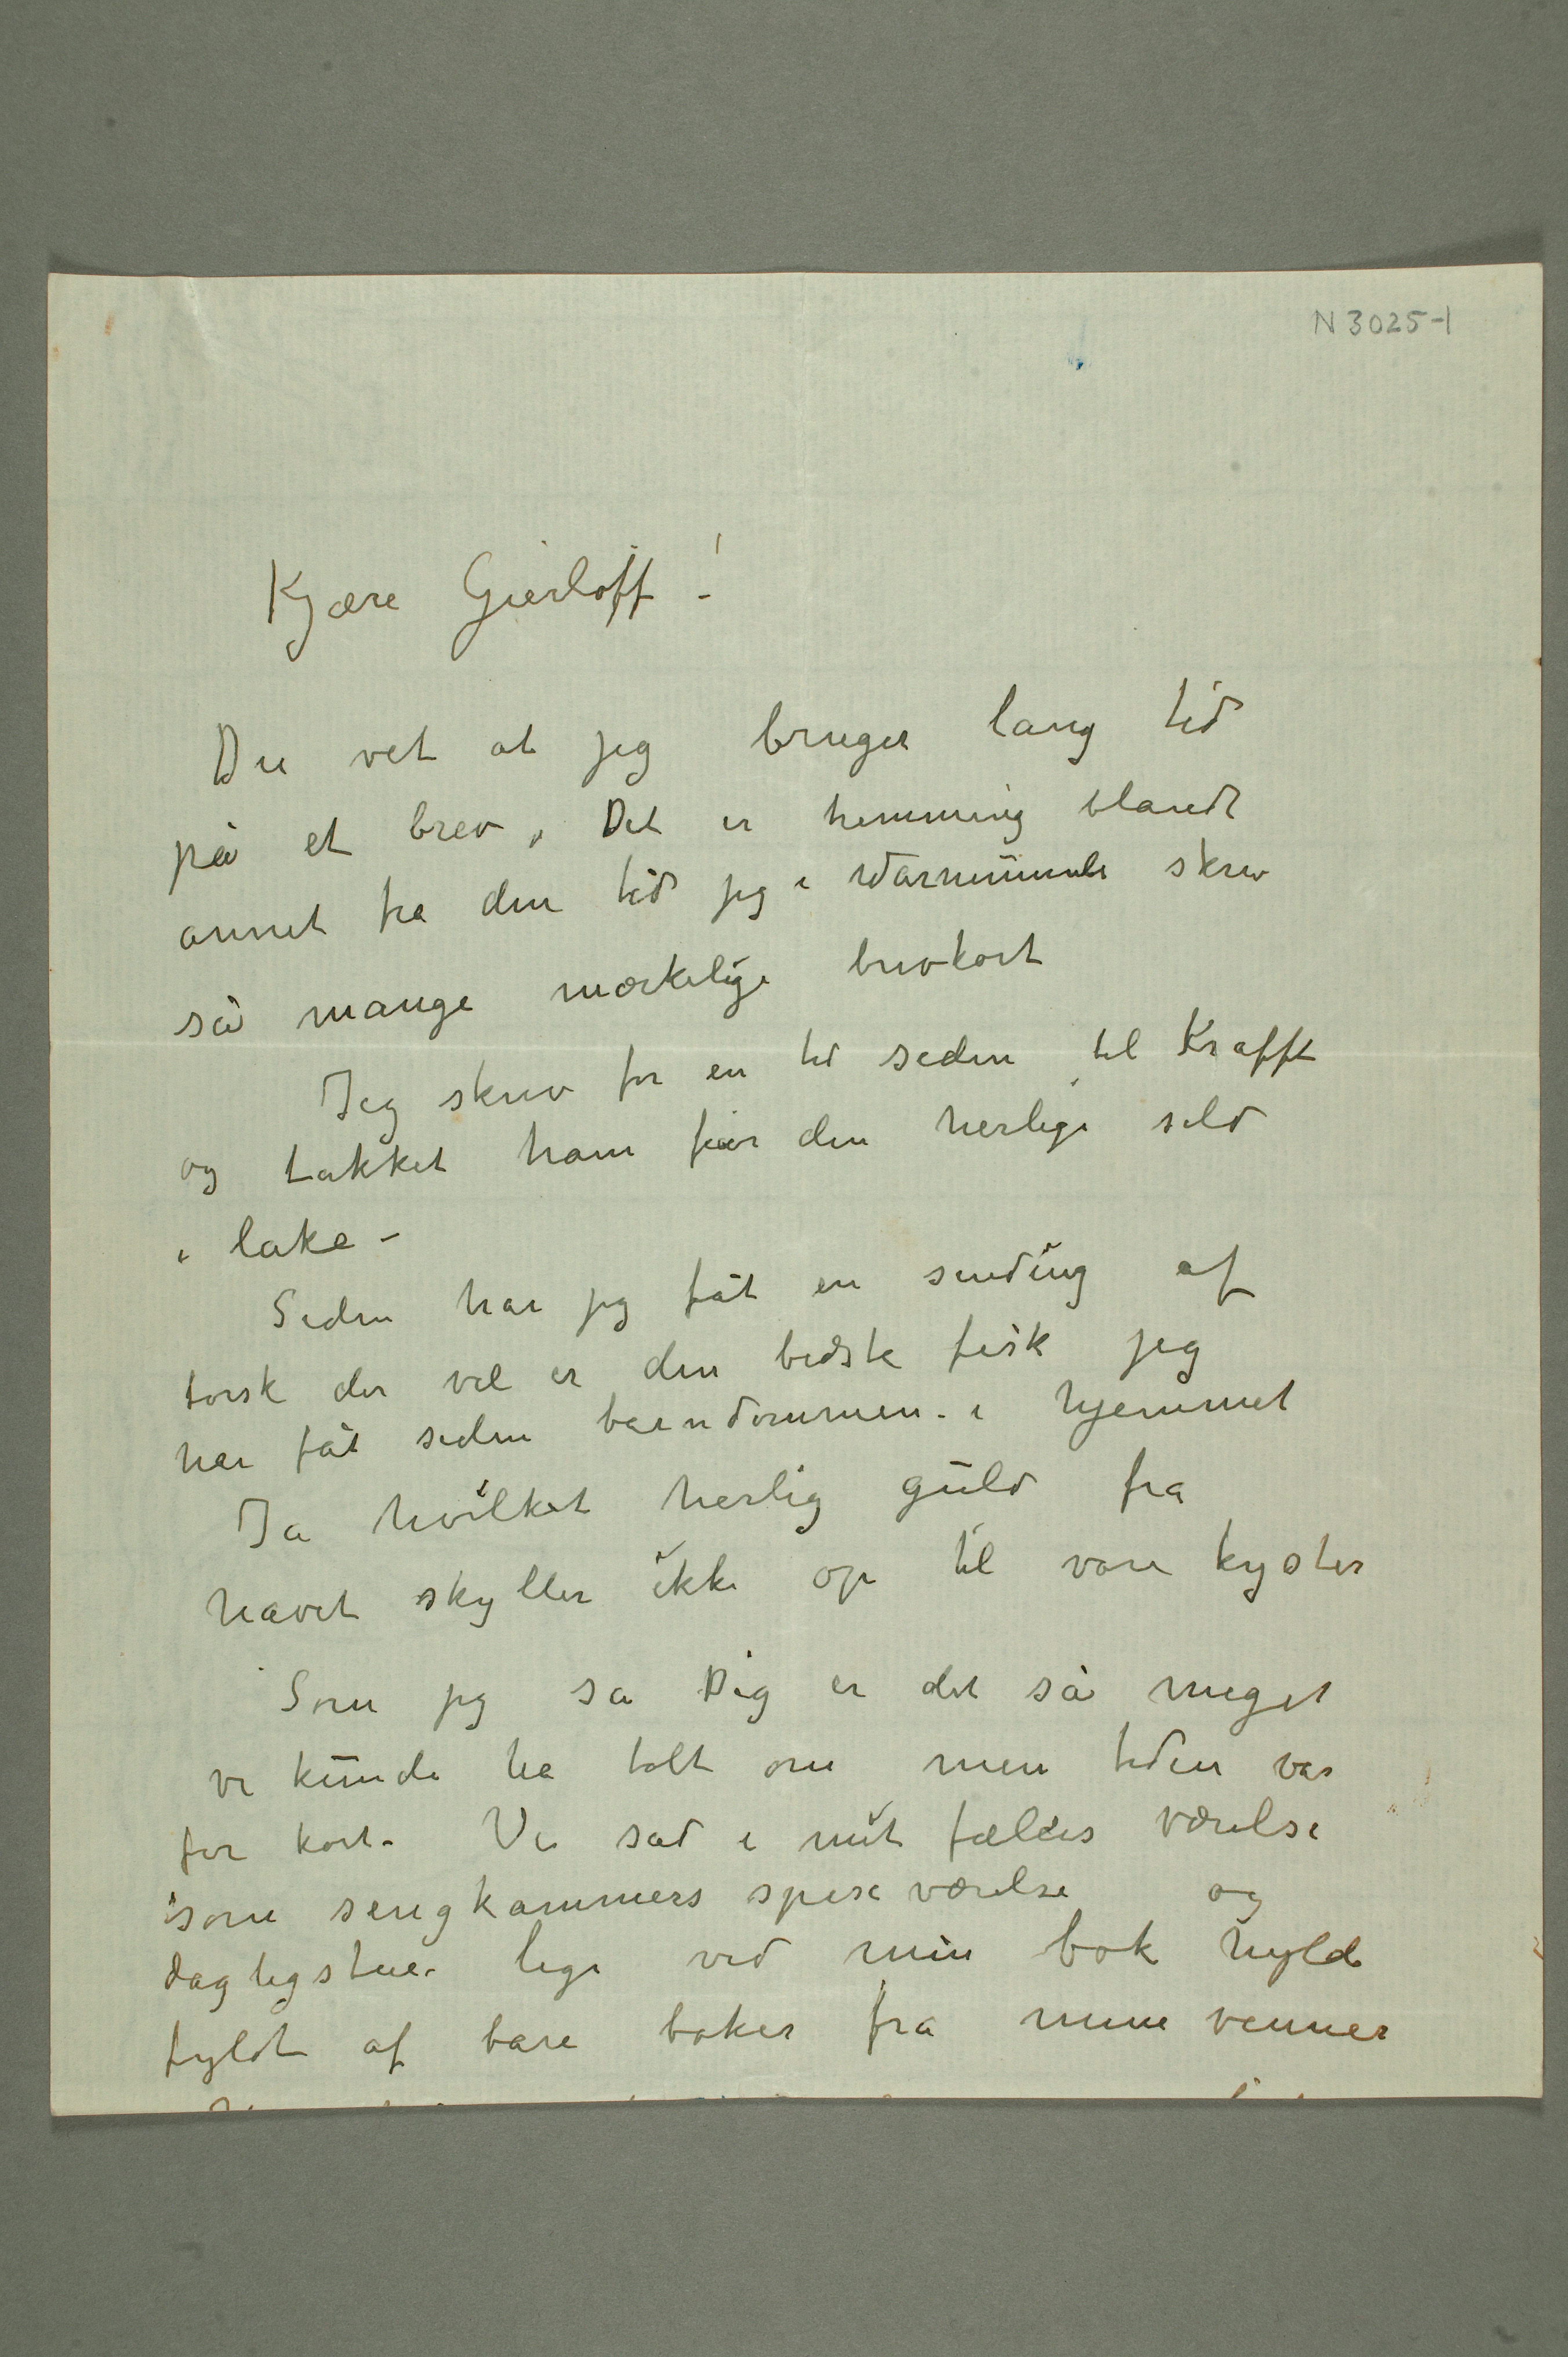 N 3025-1
Kjære Gierløff!
Du vet at jeg bruger lang tid
på et brev. Det er hemning blandt
annet fra den tid jeg i Warnemünde skrev
så mange mærkelige brevkort
Jeg skrev for en tid siden til Krafft
og takket ham før den herlige sild
i lake –
Siden har jeg fåt en sending af
torsk der vel er den bedste fisk jeg
har fåt siden barndommen i hjemmet
Ja hvilket herlig guld fra
havet skyller ikke op til vore kyster
Som jeg sa Dig er det så meget
vi kunde ha talt om men tiden var
for kort. Vi sad i mit fælles værelse
som sengkammers spiseværelse og
dagligstue lige ved min bok hylde
fyldt af bare bøker fra mine venner